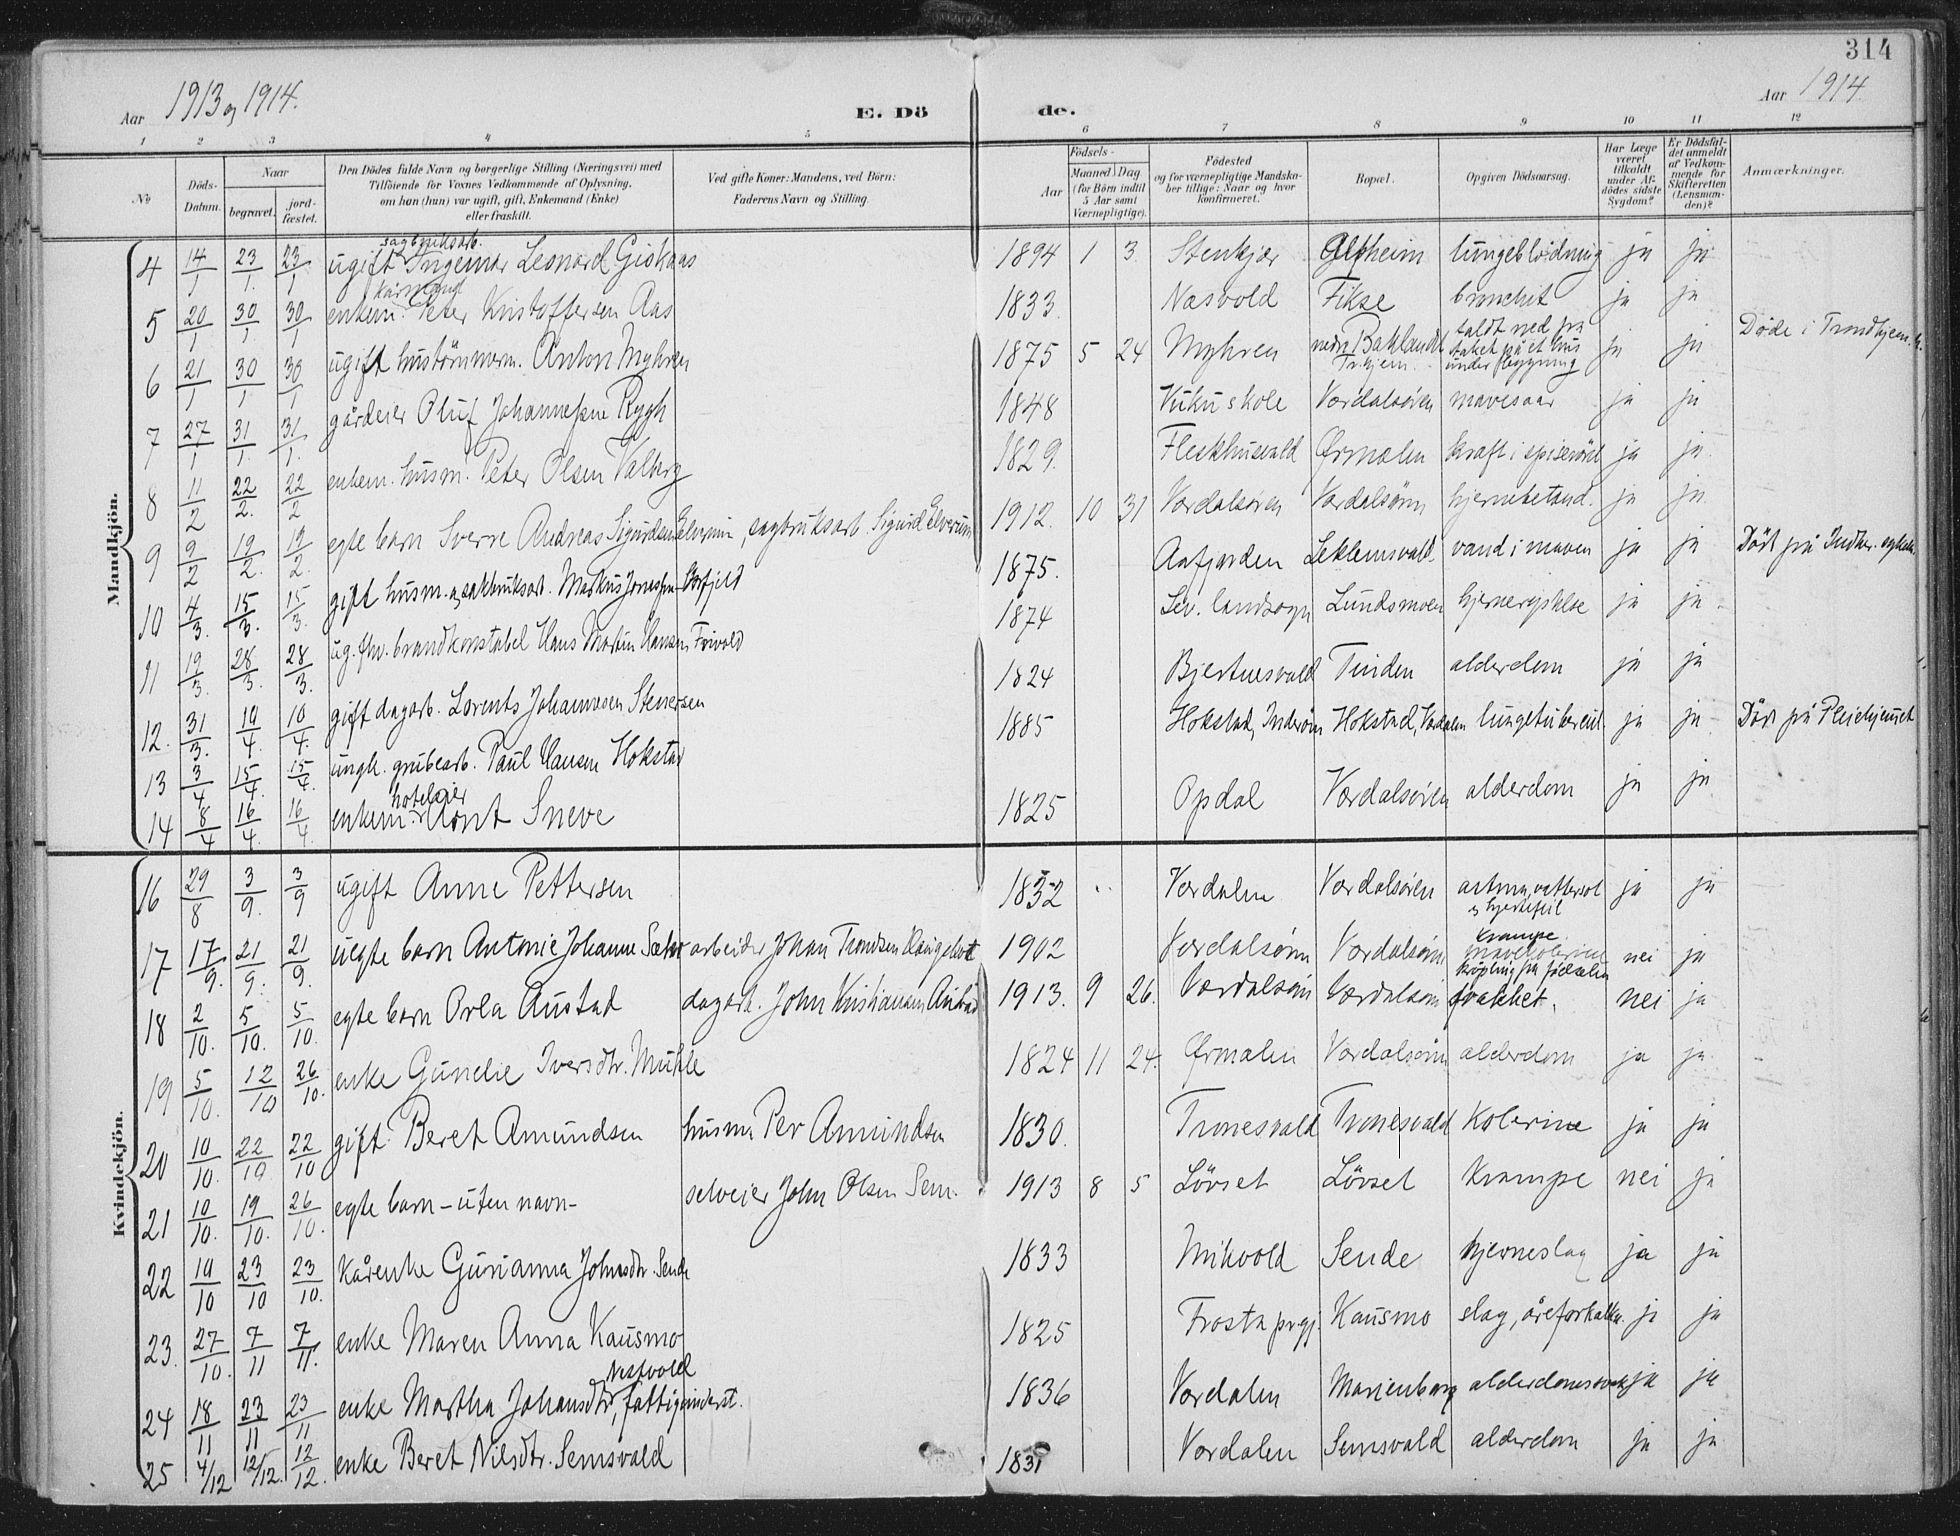 314
Aar 1913 og 1914.
E. Dö de.
Aar 1914
1 2 3 4 5 6 7 8 9 10 11 12
No
Döds-Datum.
Naar
begravet.
jord-fæstet.
Den Dödes fulde Navn og borgerlige Stilling (Næringsvei) med
Tilföiende for Voxnes Vedkommende af Oplysning,
om han (hun) var ugift, gift, Enkemand (Enke)
eller fraskilt.
Ved gifte Koner: Mandens, ved Börn:
Faderens Navn og Stilling.
Födsels-
Aar
Maaned Dag
(for Börn indtil
5 Aar samt
Værnepligtige).
Födested
og for værnepligtige Mandska-
ber tillige: Naar og hvor
konfirmeret.
Bopæl.
Opgiven Dödsaarsag.
Har Læge
været
tilkaldt
under Af-
dödes sidste
Sygdom?
Er Dödsfal-
det anmeldt
af Vedkom-
mende for
Skifteretten
(Lensman-
den)?
Anmærkninger.
Mandkjön.
4 14/1 23/1. 23/1 ugift sagbruksarb. Ingemar Leonard Giskaas 1894 1 3 Stenkjær lungeblödning ja ja
5 20/1 30/1 30/1 enkem. Peter Kristoffersen Aas 1833. Næsvold Fikse bronchit ja ja
6 21/1 30/1 30/1 ugift Anton Myhren 1875 5 24 Myhren nedre Baklandet Tr.hjem. faldt ned fra taket på et hus under bygning ja ja Døde i Trondhjem
7 27/1 31/1. 31/1. gårdeier Oluf Johannessen Rygh 1848 Vuku skole Værdalsören mavesaar ja ja
8 11/2 22/2. 22/2 enkem. husm. Peter Olsen Valberg 1829. Fleskhusvald Ørmelen kræft i spiserör ja ja
9 9/2 19/2. 19/2. egte barn Sverre Andreas Sigurdsen Elverum, sagbruksarb. Sigurd Elverum 1912. 10 31 Værdalsören Værdalsören hjernebetænd. ja ja
10 4/3. 15/3. 15/3. gift husm. og sakbruksarb. Markus 1875. Aafjorden Leklemsvald vand i maven ja ja Död på Indher. sykeh.
11 19/3. 28/3. 28/3. ug. fhv. brandkonstabel Hans Martin Hansen Frivold 1874 Lev. landsogn Lundsmoen ja ja
12. 31/3. 10/4. 10/4. gift dagarb. Lorents Johannesen Stenersen 1824 Tinden alderdom ja ja
13 3/4 15/4. 15/4. ungk. grubearb. Paul Hansen Hokstad 1885 Hokstad, Inderöen Hokstad, Værdalen lungetuberkul. ja ja Död på Pleiehjemmet
14 8/4 16/4. 16/4 enkem. hoteleier Arnt Sneve 1825 Opdal Værdalsören alderdom ja ja
Kvindekjön.
16 29/8 3/9. 3/9 ugift Anne Pettersen 1832 Værdalen Værdalsören astma, vattersot og hjertefeil ja ja
17 17/9. 21/9. 21/9. uegte barn Antonie Johanne arbeider Johan Trondsen 1902 Værdalsören Værdalsören krampe nei ja
18 2/10. 5/10. 5/10. egte barn Orla Austad dagarb. John Kristiansen Austad 1913. 9 26. Værdalsören Værdalsören svakhet. nei ja
19 5/10. 12/10 26/10. enke Gunelie Iversdtr. Mühle 1824 11 24. Ørmelen Værdalsören alderdom ja ja
20 10/10. 22/10 22/10 gift Beret Amundsen husm Per Amundsen 1830. Tronesvald Tronesvald Kolerine ja ja
21 10/10. 19/10. 26/10. egte barn – uten navn – selveier John Olsen Sem. 1913 8 5 Lövset Lövset Krampe nei ja
22 10/10 23/10 23/10. kårenke Gurianna Johnsdtr. Sende 1833 Mikvold Sende hjerneslag ja ja
23. 27/10. 7/11 7/11. enke Maren Anna Kausmo 1825 Frosta prgj. Kausmo slag, åreforkalkn. ja ja
24 18/11 23/11 23/11 enke Martha Johansdtr. Nestvold, fattigunderst. 1836 Værdalen Marienborg ja ja
25 4/12 12/12. 12/12. enke Beret Nilsdtr. Semsvald 1831 Værdalen Semsvald alderdom ja ja